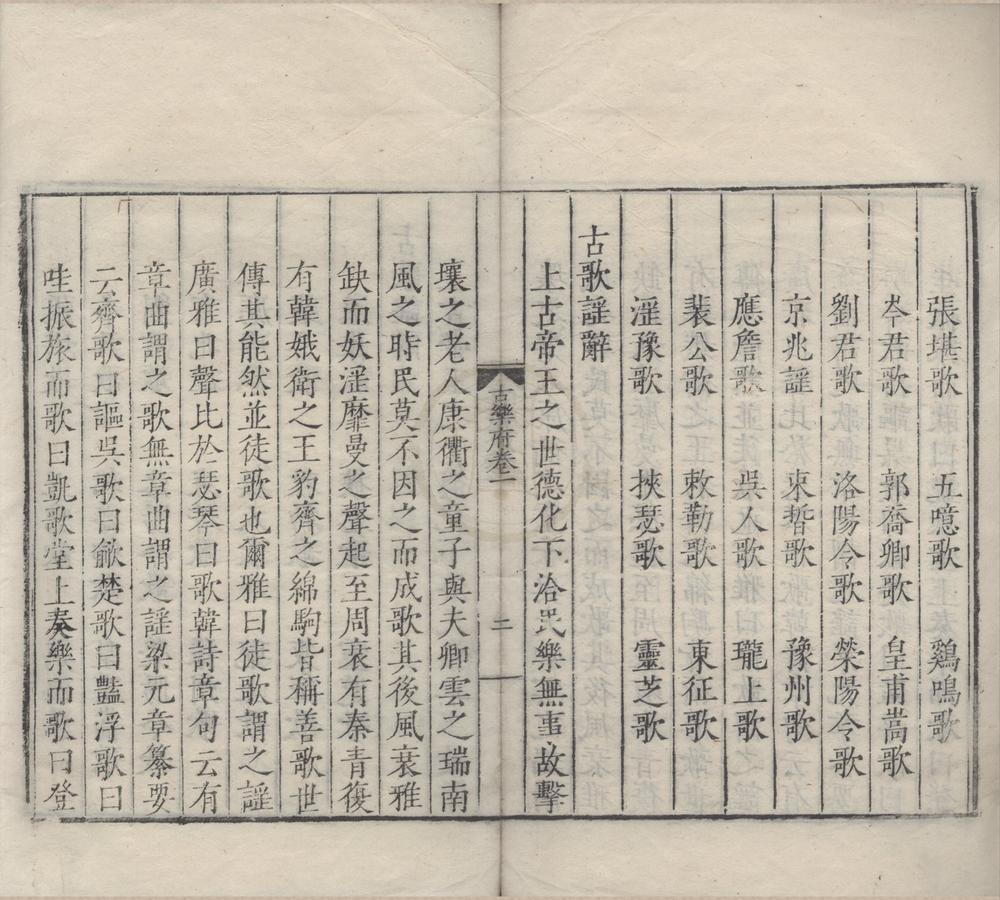 張堪歌 五噫歌 鷄鳴歌
岑君歌 郭喬卿歌 皇甫嵩歌
劉君歌 洛陽令歌 滎陽令歌
京兆謡 束晳歌 豫州歌
應詹歌 吳人歌 隴上歌
裴公歌 敕勒歌 東征歌
淫豫歌 挾瑟歌 靈芝歌
古歌謡辭
上古帝王之世德化下洽民樂無事故擊
古樂府卷一 二
壤之老人康衢之童子與夫卿雲之瑞南
風之時民莫不因之而成歌其後風衰雅
缺而妖淫靡曼之聲起至周衰有秦青復
有韓娥衛之王豹齊之綿駒皆稱善歌世
傳其能然並徒歌也爾雅曰徒歌謂之謡
廣雅曰聲比於瑟琴曰歌韓詩章句云有
章曲謂之歌無章曲謂之謡梁元章纂要
云齊歌曰謳吳歌曰歈楚歌曰豔浮歌曰
哇振旅而歌曰凱歌堂上奏樂而歌曰登